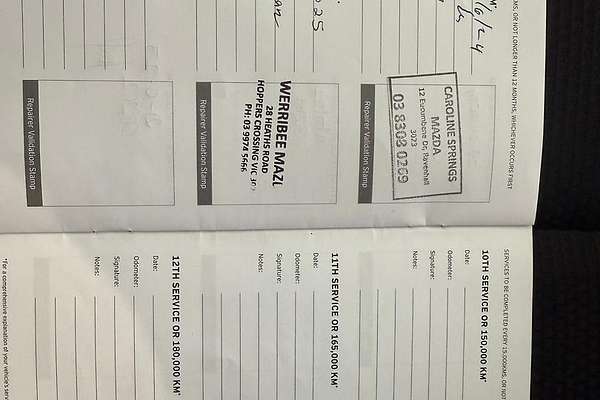 KMS, OR NOT LONGER THAN 12 MONTHS, WHICHEVER OCCURS FIRST
M*
/6/24
CAROLINE SPRINGS
MAZDA
12 Eucumbene Dr, Ravenhall
3023
03 8308 0269
Repairer Validation Stamp
25
WERRIBEE MAZ
28 HEATHS ROAD
HOPPERS CROSSING VIC 30
PH: 03 9974 5666
Repairer Validation Stamp
Repairer Validation Stamp
SERVICES TO BE COMPLETED EVERY 15,000KMS, OR NOT
10TH SERVICE OR 150,000 KM*
Date:
Odometer:
Signature:
Notes:
11TH SERVICE OR 165,000 KM*
Date:
Odometer:
Signature:
Notes:
12TH SERVICE OR 180,000 KM*
Date:
Odometer:
Signature:
Notes:
*For a comprehensive explanation of your vehicle's serv